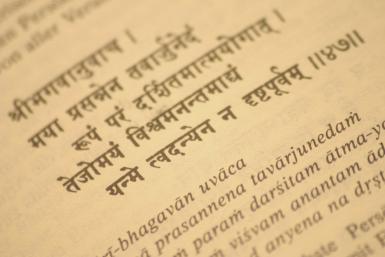 श्रीभगवानुवाच ।
मया प्रसन्नेन तवार्जुनेदं
रूपं परं दर्शितमात्मयोगात् ।
तेजोमयं विश्वमनन्तमाद्यं
यन्मे त्वदन्येन न दृष्टपूर्वम् ॥४७॥
-bhagavān uvāca
prasannena tavārjunedaṁ
paraṁ darśitam ātma-yo
viśvam anantam ād
anyena na dṛṣṭ